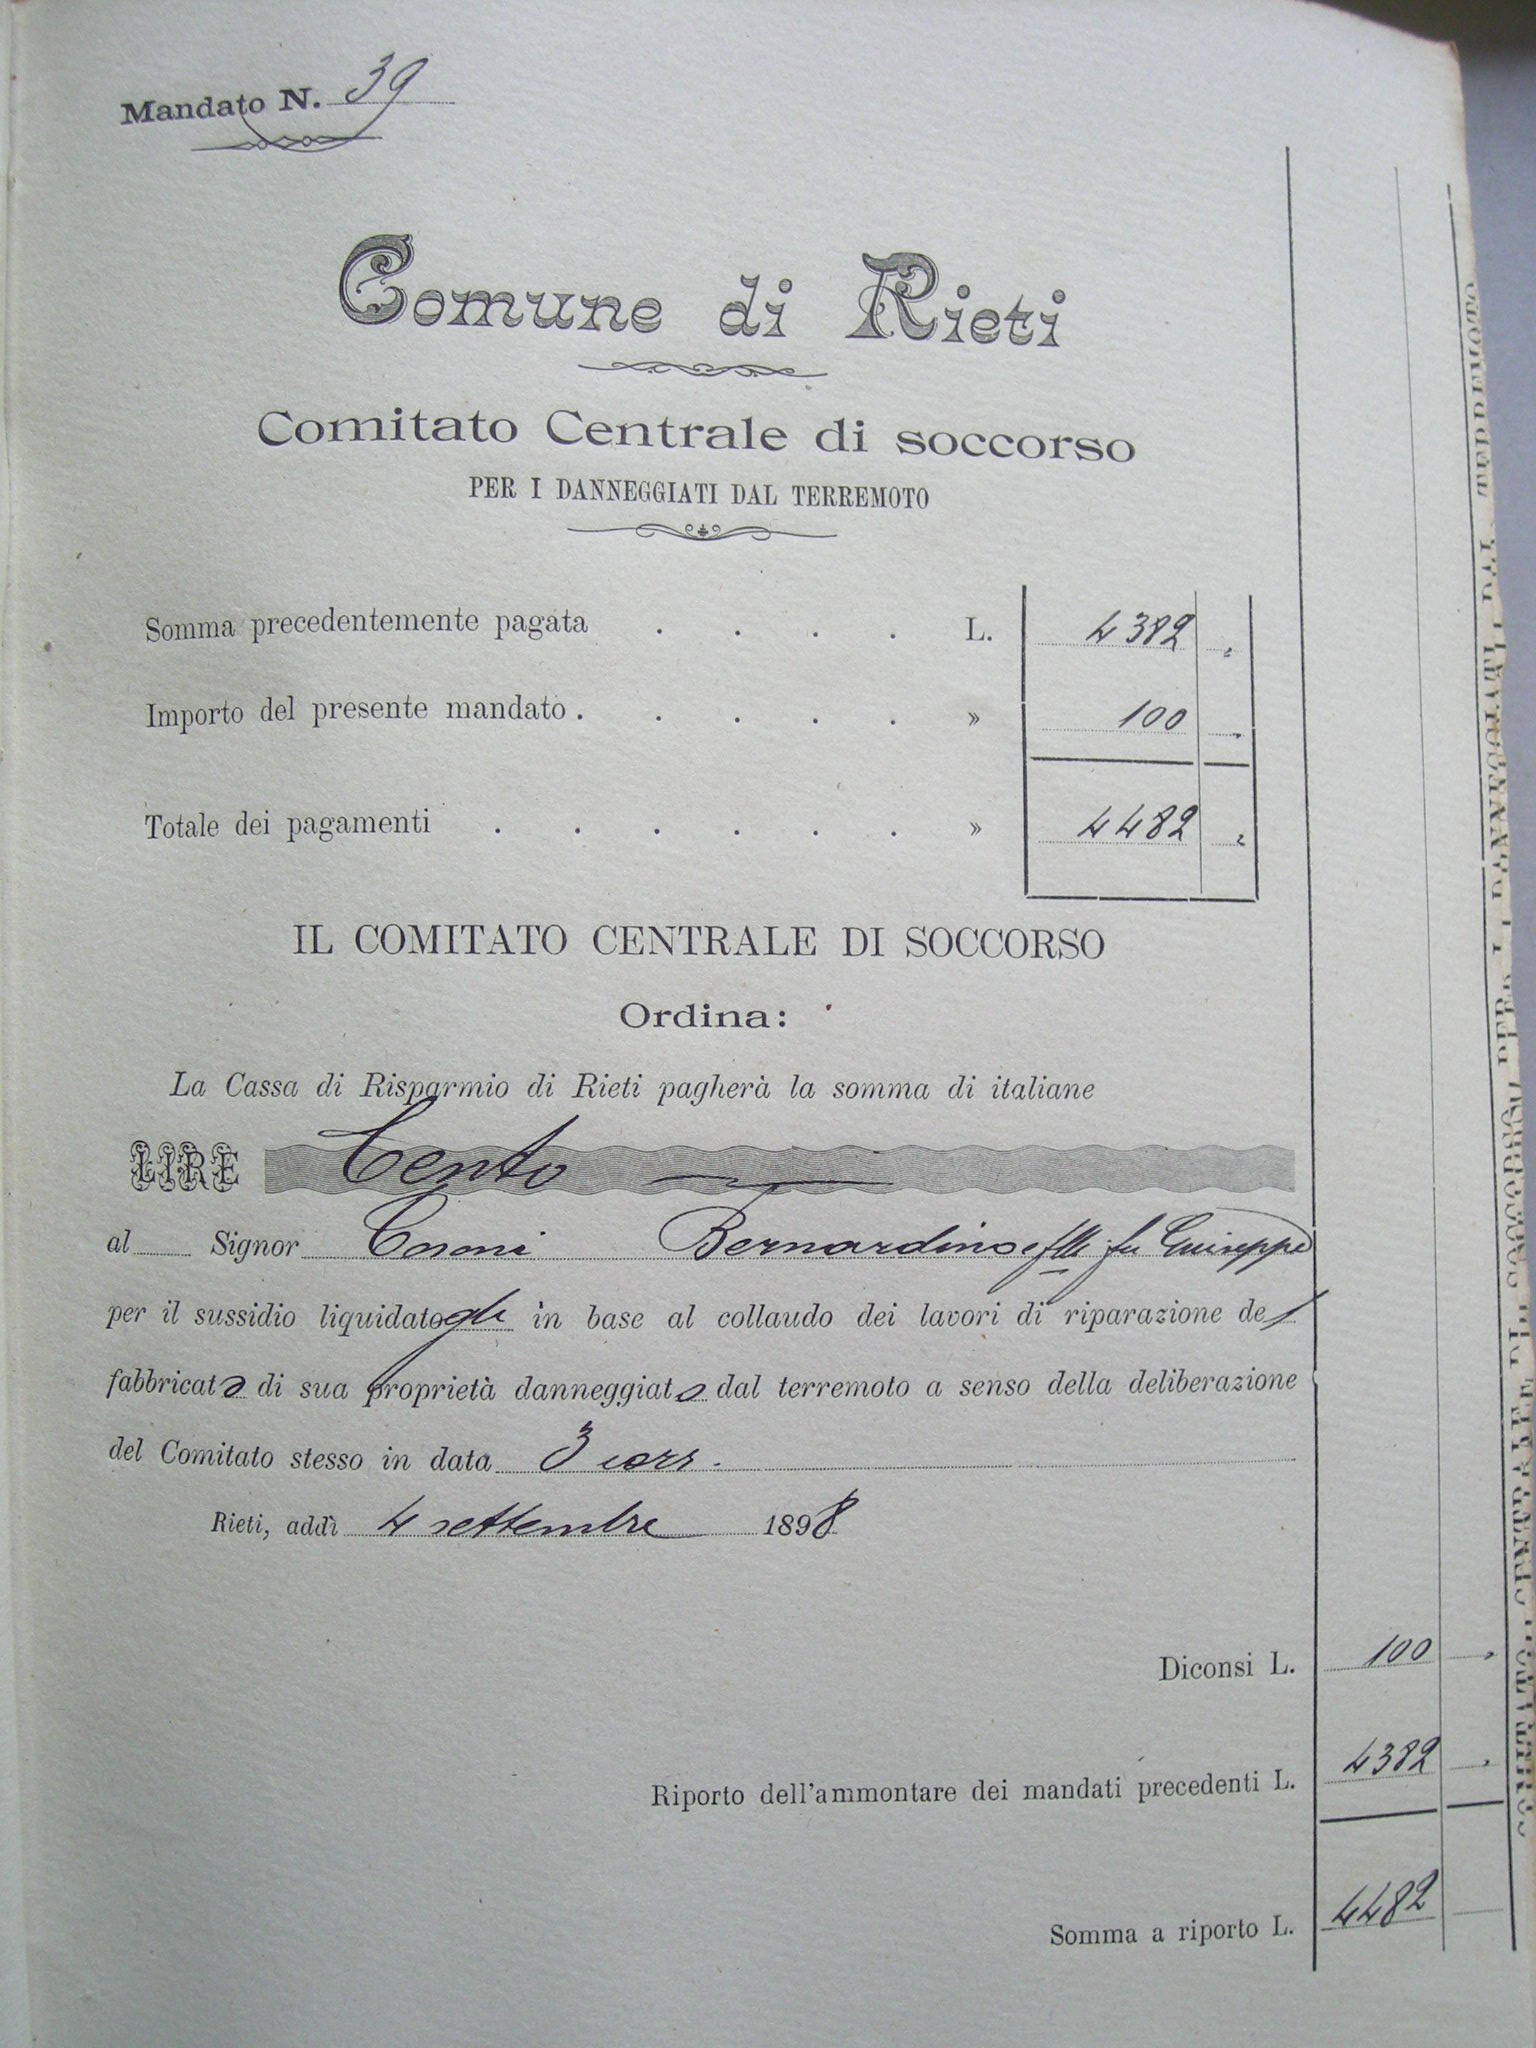 Mandato N. 39
Comune di Rieti
Comitato Centrale di soccorso
PER I DANNEGGIATI DAL TERREMOTO
Somma precedentemente pagata . . . . L. 4382 „
Importo del presente mandato . . . . . » 100 „
Totale dei pagamenti . . . . . . » 4482 „
IL COMITATO CENTRALE DI SOCCORSO
Ordina:
La Cassa di Risparmio di Rieti pagherà la somma di italiane
LIRE Cento
al Signor Bernardino e flli fu Giuseppe
per il sussidio liquidatogli in base al collaudo dei lavori di riparazione del
fabbricato di sua proprietà danneggiato dal terremoto a senso della deliberazione
del Comitato stesso in data 3 corr.
Rieti, addì 4 settembre 1898
Diconsi L. 100 „
Riporto dell'ammontare dei mandati precedenti L. 4382 „
Somma a riporto L. 4482